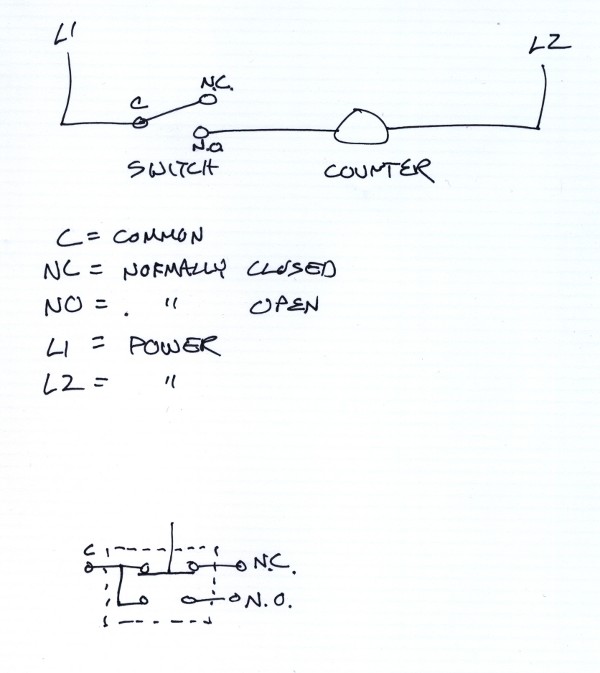 L1
L2
C
N.C.
N.O
SWITCH
COUNTER
C = COMMON
NC = NORMALLY CLOSED
NO = . " OPEN
L1 = POWER
L2 = "
C
N.C.
N.O.